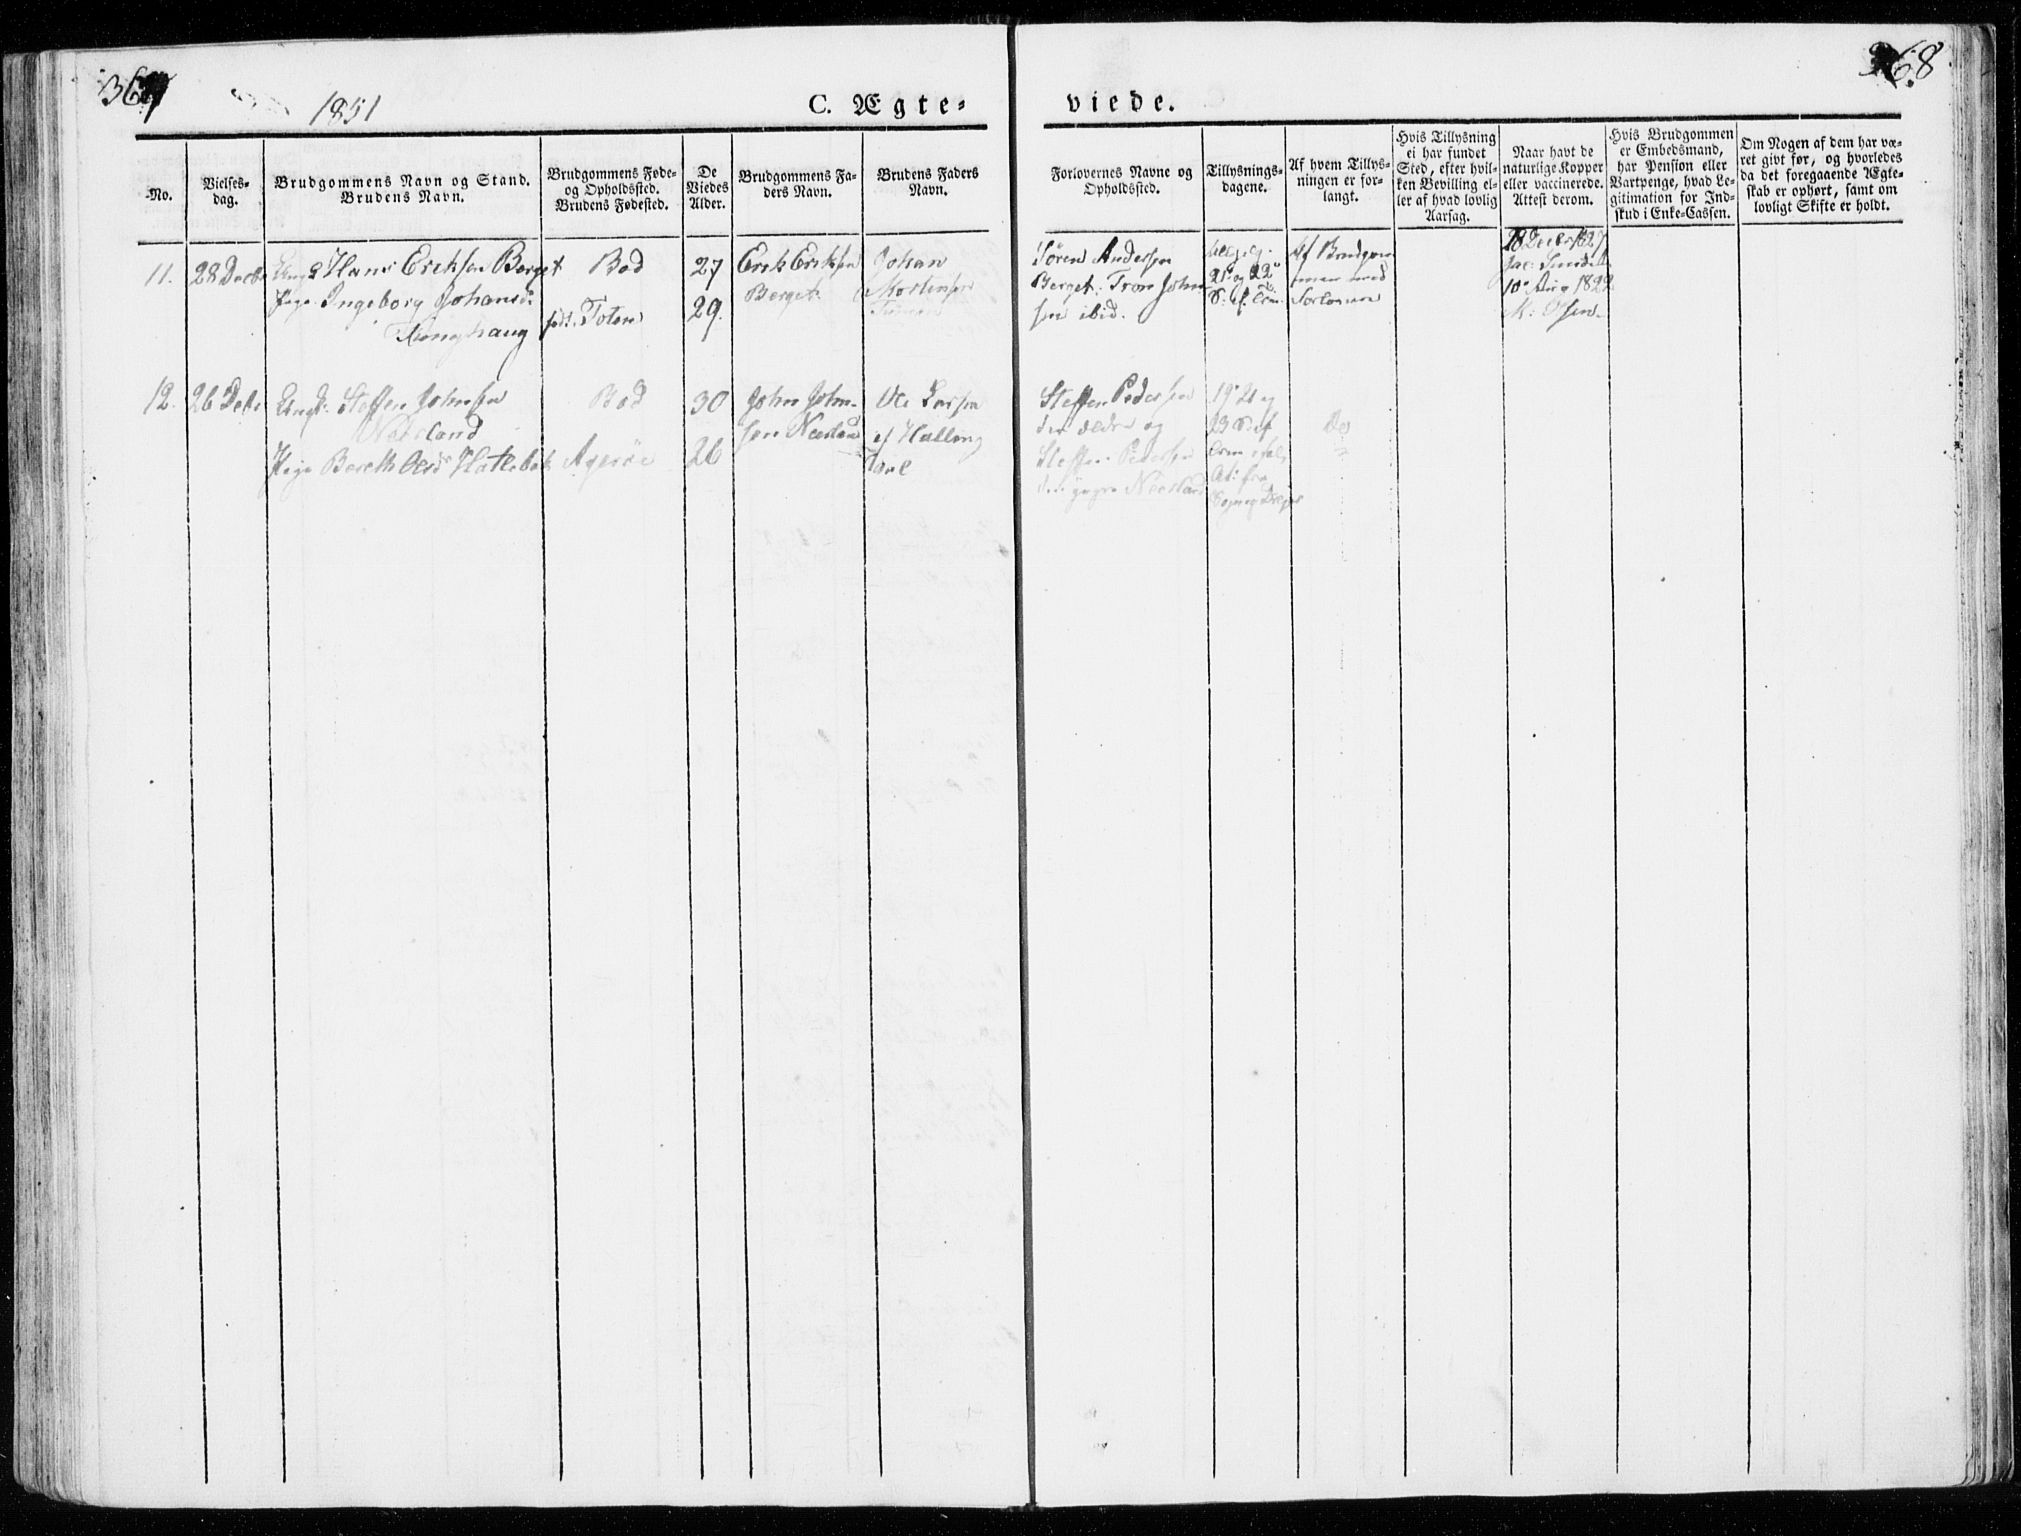 367
1851
C. Ægte-
viede.
368
No.
Vielses-
dag.
Brudgommens Navn og Stand.
Brudens Navn.
Brudgommens Føde-
og Opholdssted.
Brudens Fødested.
De
Viedes
Alder.
Brudgommens Fa-
ders Navn.
Brudens Faders
Navn.
Forlovernes Navne og
Opholdssted.
Tillysnings-
dagene.
Af hvem Tillys-
ningen er for-
langt.
Hvis Tillysning
ei har fundet
Sted, efter hvil-
ken Bevilling el-
ler af hvad lovlig
Aarsag.
Naar havt de
naturlige Kopper
eller vaccinerede.
Attest derom.
Hvis Brudgommen
er Embedsmand,
har Pension eller
Vartpenge, hvad Le-
gitimation for Ind-
skud i Enke-Cassen.
Om Nogen af dem har væ-
ret givt før, og hvorledes
da det foregaaende Ægte-
skab er ophørt, samt om
lovligt Skifte er holdt.
11.
28 Decbr
Hans Eriksen Berget
Pige Ingeborg Johansd.
Bod
Toten
27
29.
Erik Eriksen
Berget
Johan
Mortensen
Søren Andersen
Berget. Tron John-
sen ibid.
21 og 22
Af Brudgom-
men med
Forloverne
18 Decbr 1827
10 Aug 1822
12.
26 Decbr
Ungk. Steffen Johnsen
Neesland
Pige Bereth Olesd. Hatlebak
Bod
Agerøe
30
26
John John-
sen Neesland
Ole Larsen
af Halling
dael
Steffen Pedersen
den ældre og
Steffen Pedersen
den yngre Neesland
19 21 og
23 S. ef
Do